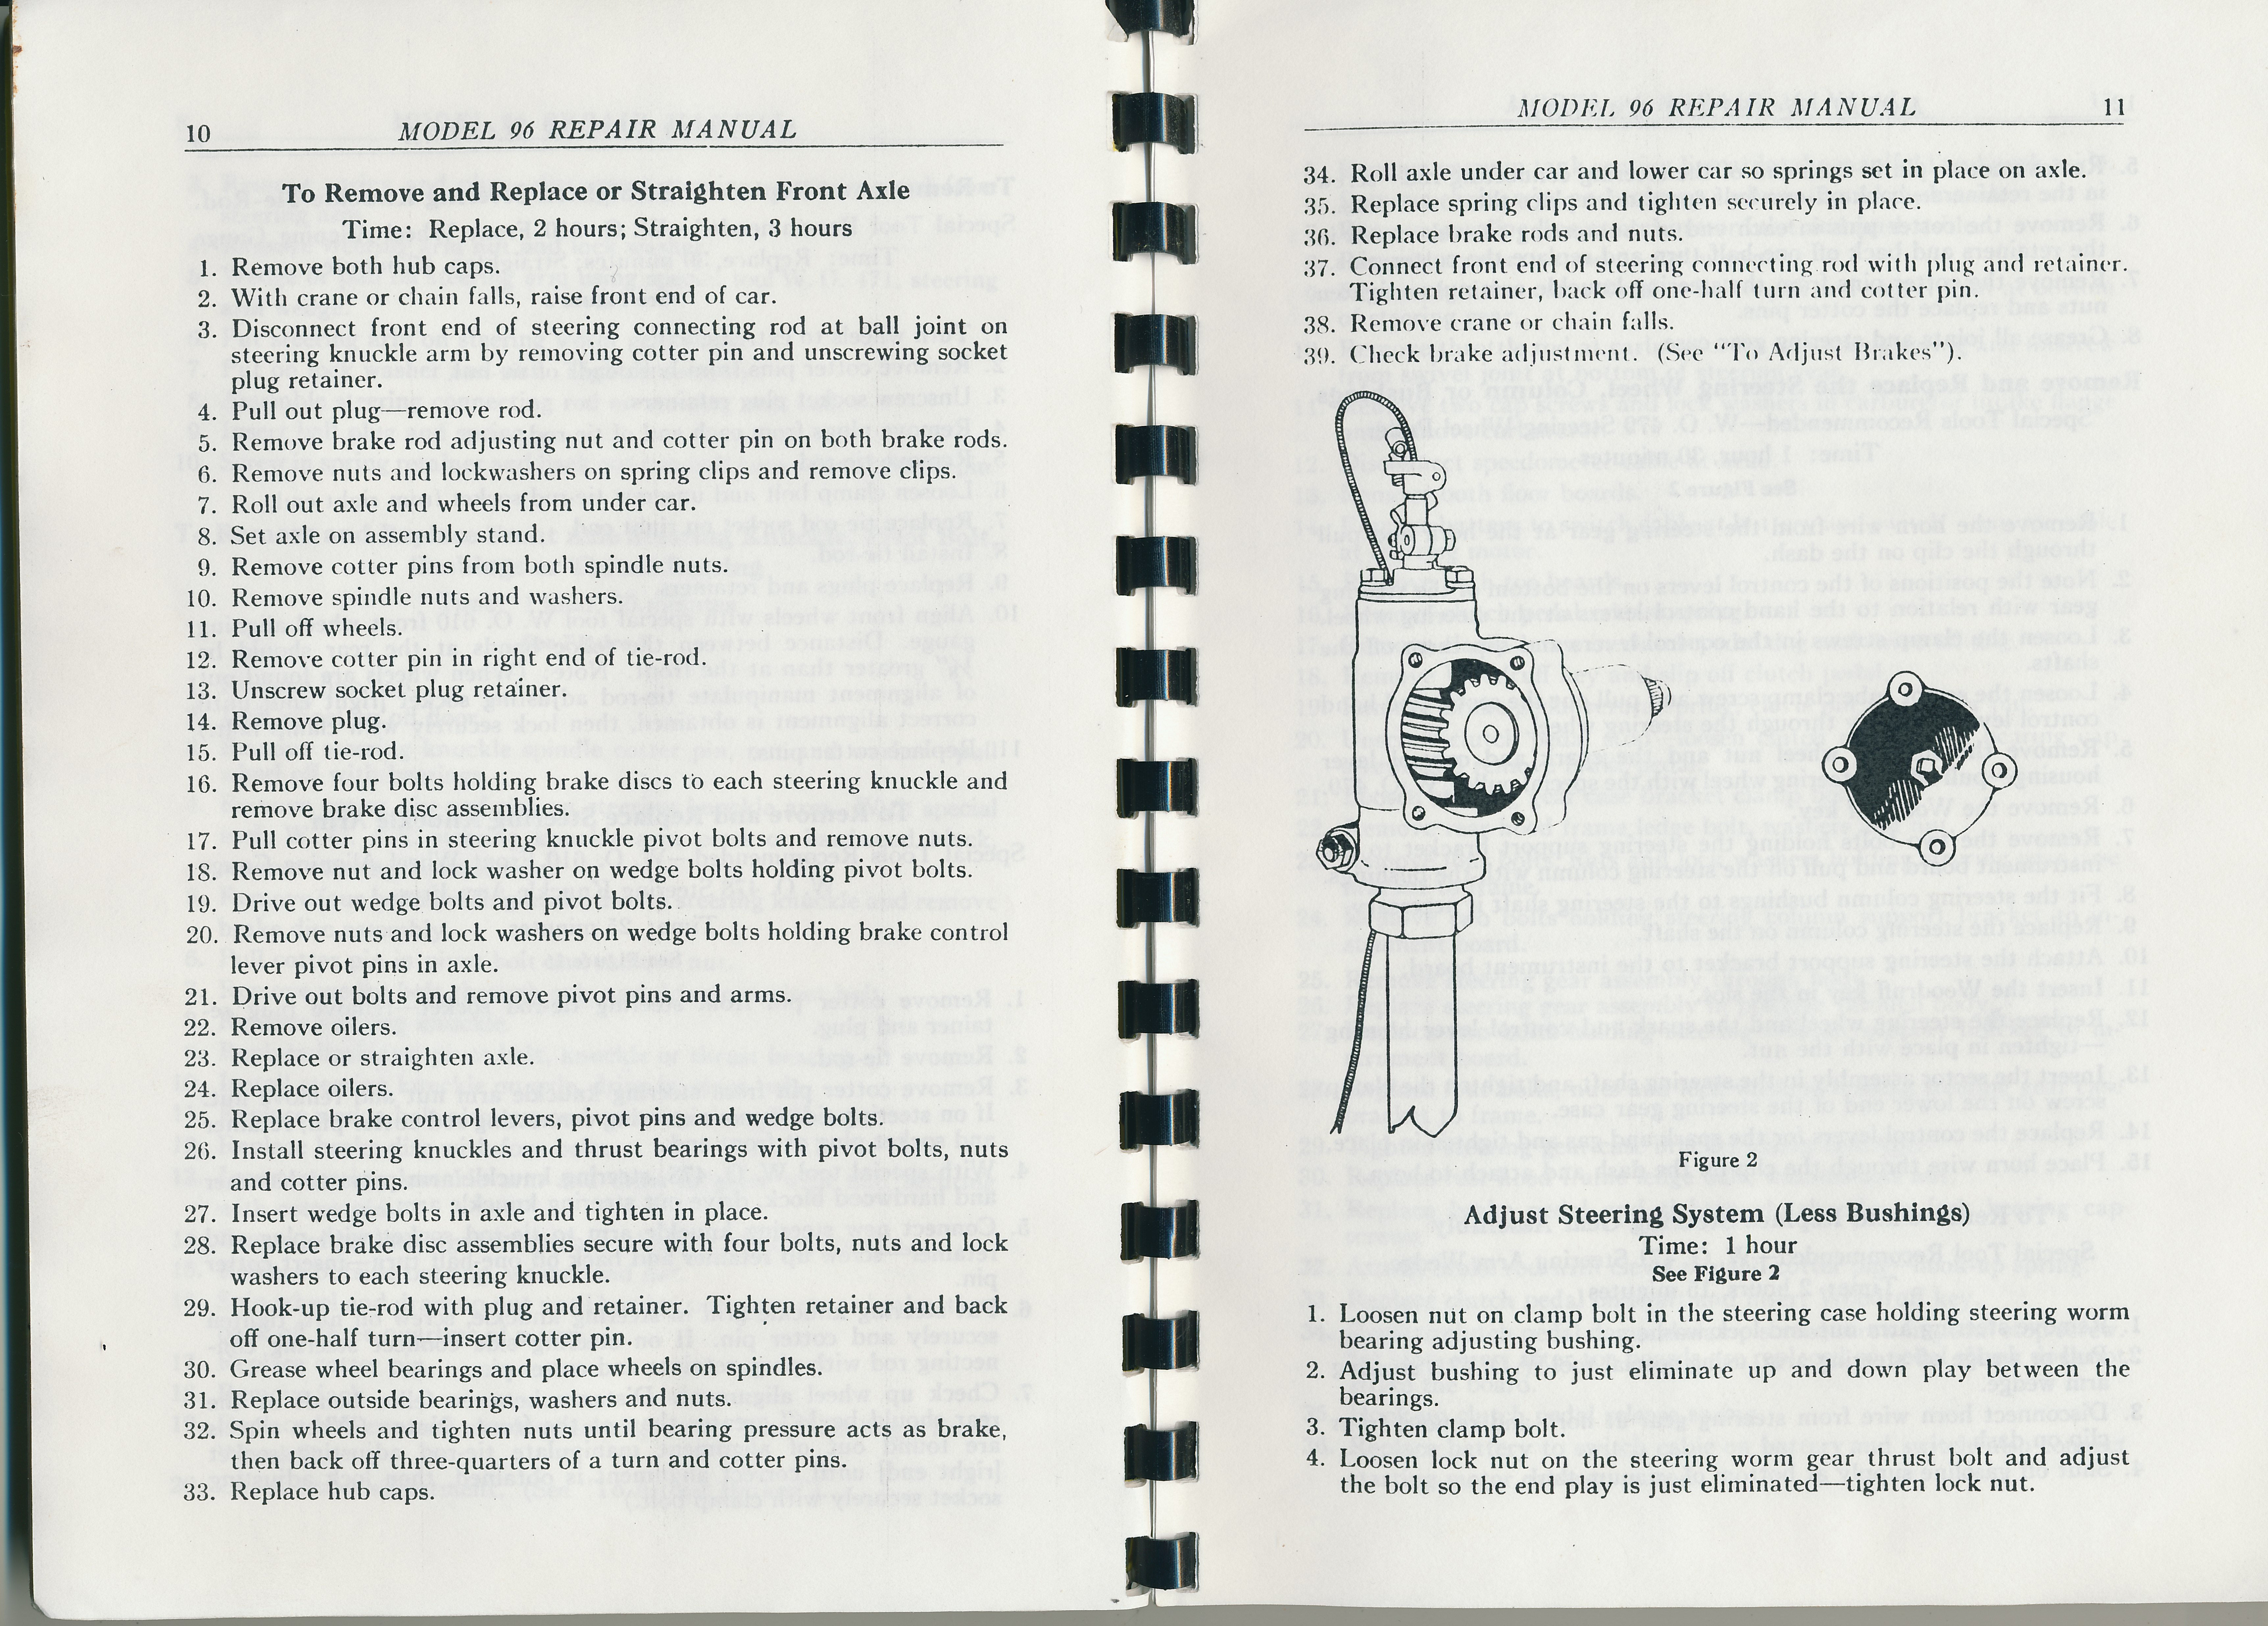 10 MODEL 96 REPAIR MANUAL
To Remove and Replace or Straighten Front Axle
Time: Replace, 2 hours; Straighten, 3 hours
1. Remove both hub caps.
2. With crane or chain falls, raise front end of car.
3. Disconnect front end of steering connecting rod at ball joint on
steering knuckle arm by removing cotter pin and unscrewing socket
plug retainer.
4. Pull out plug—remove rod.
5. Remove brake rod adjusting nut and cotter pin on both brake rods.
6. Remove nuts and lockwashers on spring clips and remove clips.
7. Roll out axle and wheels from under car.
8. Set axle on assembly stand.
9. Remove cotter pins from both spindle nuts.
10. Remove spindle nuts and washers.
11. Pull off wheels.
12. Remove cotter pin in right end of tie-rod.
13. Unscrew socket plug retainer.
14. Remove plug.
15. Pull off tie-rod.
16. Remove four bolts holding brake discs to each steering knuckle and
remove brake disc assemblies.
17. Pull cotter pins in steering knuckle pivot bolts and remove nuts.
18. Remove nut and lock washer on wedge bolts holding pivot bolts.
19. Drive out wedge bolts and pivot bolts.
20. Remove nuts and lock washers on wedge bolts holding brake control
lever pivot pins in axle.
21. Drive out bolts and remove pivot pins and arms.
22. Remove oilers.
23. Replace or straighten axle.
24. Replace oilers.
25. Replace brake control levers, pivot pins and wedge bolts.
26. Install steering knuckles and thrust bearings with pivot bolts, nuts
and cotter pins.
27. Insert wedge bolts in axle and tighten in place.
28. Replace brake disc assemblies secure with four bolts, nuts and lock
washers to each steering knuckle.
29. Hook-up tie-rod with plug and retainer. Tighten retainer and back
off one-half turn—insert cotter pin.
30. Grease wheel bearings and place wheels on spindles.
31. Replace outside bearings, washers and nuts.
32. Spin wheels and tighten nuts until bearing pressure acts as brake,
then back off three-quarters of a turn and cotter pins.
33. Replace hub caps.
MODEL 96 REPAIR MANUAL 11
34. Roll axle under car and lower car so springs set in place on axle.
35. Replace spring clips and tighten securely in place.
36. Replace brake rods and nuts.
37. Connect front end of steering connecting rod with plug and retainer.
Tighten retainer, back off one-half turn and cotter pin.
38. Remove crane or chain falls.
39. Check brake adjustment. (See "To Adjust Brakes").
Figure 2
Adjust Steering System (Less Bushings)
Time: 1 hour
See Figure 2
1. Loosen nut on clamp bolt in the steering case holding steering worm
bearing adjusting bushing.
2. Adjust bushing to just eliminate up and down play between the
bearings.
3. Tighten clamp bolt.
4. Loosen lock nut on the steering worm gear thrust bolt and adjust
the bolt so the end play is just eliminated—tighten lock nut.